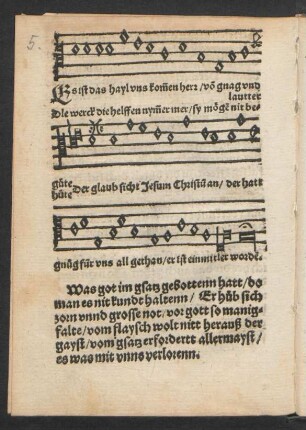 5.
Es ist das hayl vns kom̃en herꝛ / võ gnag vnd
lautter
Die werck die helffen nym̃er mer / sy mögẽ nit be-
güte
hüte
Der glaub sicht Jesum Christũ an / der hatt
gnůg für vns all gethan / er ist ein mitler worde.
Was got im gsatz gebottenn hatt / do
man es nit kundt haltenn / Er hůb sich
zoꝛn vnnd grosse not / voꝛ gott so manig-
falte / vom flaysch wolt nitt herauß der
gayst / vom gsatz erfordertt allermayst /
es was mit vnns verloꝛenn.